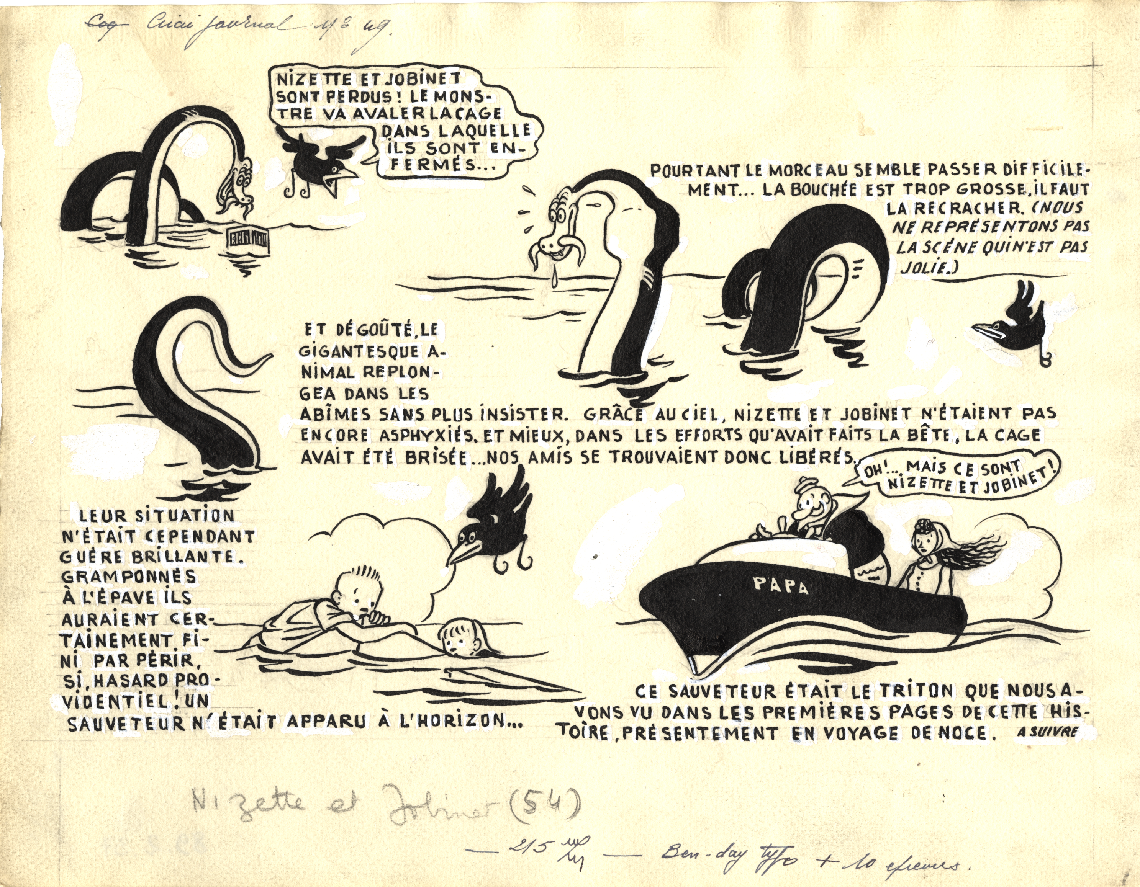 Coq Cricri journal N° 49.
NIZETTE ET JOBINET
SONT PERDUS! LE MONS-
TRE VA AVALER LA CAGE
DANS LAQUELLE
ILS SONT EN-
FERMÉS...
POURTANT LE MORCEAU SEMBLE PASSER DIFFICILE-
MENT... LA BOUCHÉE EST TROP GROSSE, IL FAUT
LA RECRACHER. (NOUS
NE REPRÉSENTONS PAS
LA SCÉNE QUI N'EST PAS
JOLIE.)
ET DÉGOÛTÉ, LE
GIGANTESQUE A-
NIMAL REPLON-
GEA DANS LES
ABÎMES SANS PLUS INSISTER. GRÂCE AU CIEL, NIZETTE ET JOBINET N'ÉTAIENT PAS
ENCORE ASPHYXIÉS. ET MIEUX, DANS LES EFFORTS QU'AVAIT FAITS LA BÊTE, LA CAGE
AVAIT ÉTÉ BRISÉE... NOS AMIS SE TROUVAIENT DONC LIBÉRÉS.
OH!... MAIS CE SONT
NIZETTE ET JOBINET!
LEUR SITUATION
N'ÉTAIT CEPENDANT
GUÉRE BRILLANTE.
GRAMPONNÉS
À L'ÉPAVE ILS
AURAIENT CER-
TAINEMENT FI-
NI PAR PÉRIR,
SI, HASARD PRO-
VIDENTIEL! UN
SAUVETEUR N'ÉTAIT APPARU À L'HORIZON...
PAPA
CE SAUVETEUR ÉTAIT LE TRITON QUE NOUS A-
VONS VU DANS LES PREMIÉRES PAGES DE CETTE HIS-
TOIRE, PRÉSENTEMENT EN VOYAGE DE NOCE. A SUIVRE
Nizette et Jobinet (54)
— 215 — Ben-day typo + 10 épreuves.